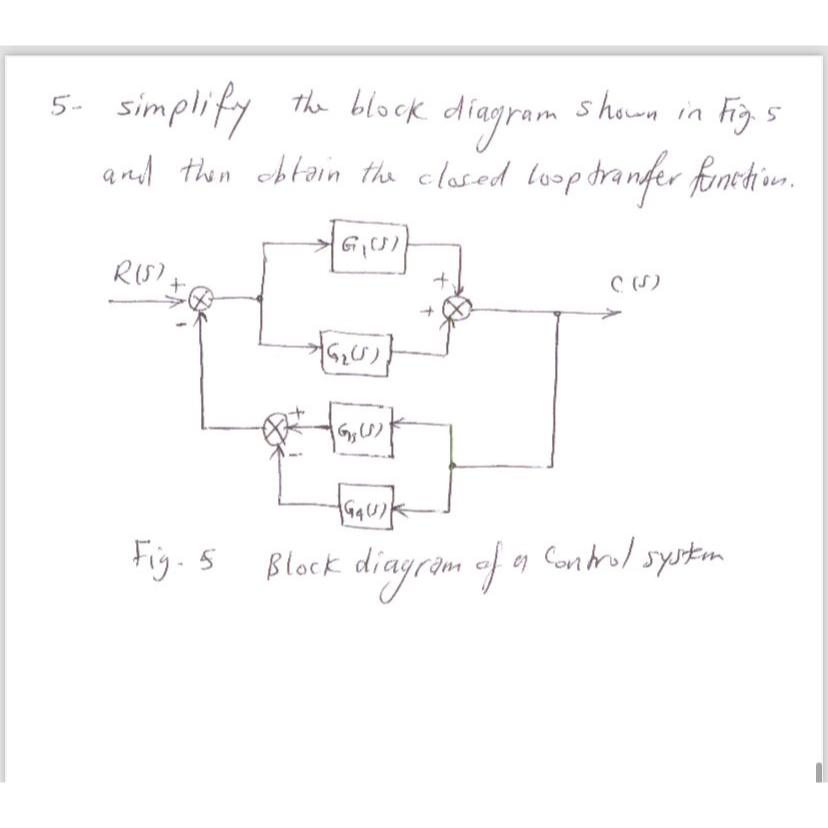 5- simplify the block diagram shown in Fig. 5
and then obtain the closed loop tranfer function.
G1(S)
R(S) +
C(S)
+
+
-
G2(S)
+
G3(S)
-
G4(S)
Fig. 5 Block diagram of a Control system